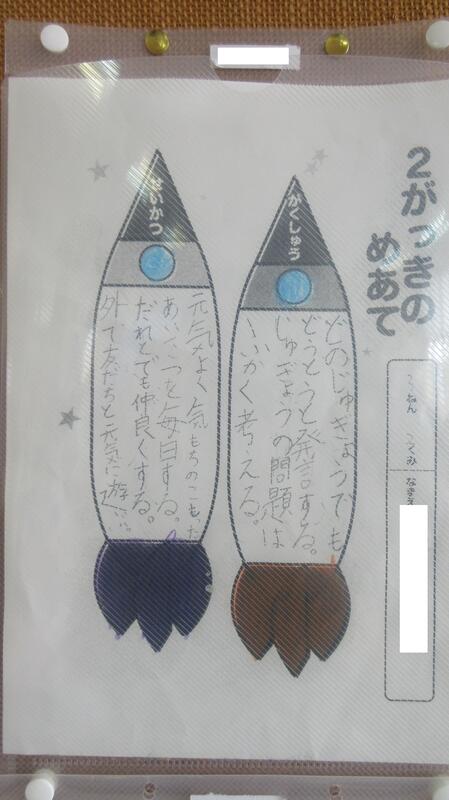 2がっきの
めあて
ねん
くみ
なまえ
がくしゅう
どのじゅぎょうでも
どうどうと発言する。
じゅぎょうの問題は
いかく考える。
せいかつ
元気よく気もちのこもった
あいさつを毎日する。
だれとでも仲良くする。
外で友だちと元気に遊ぶ。